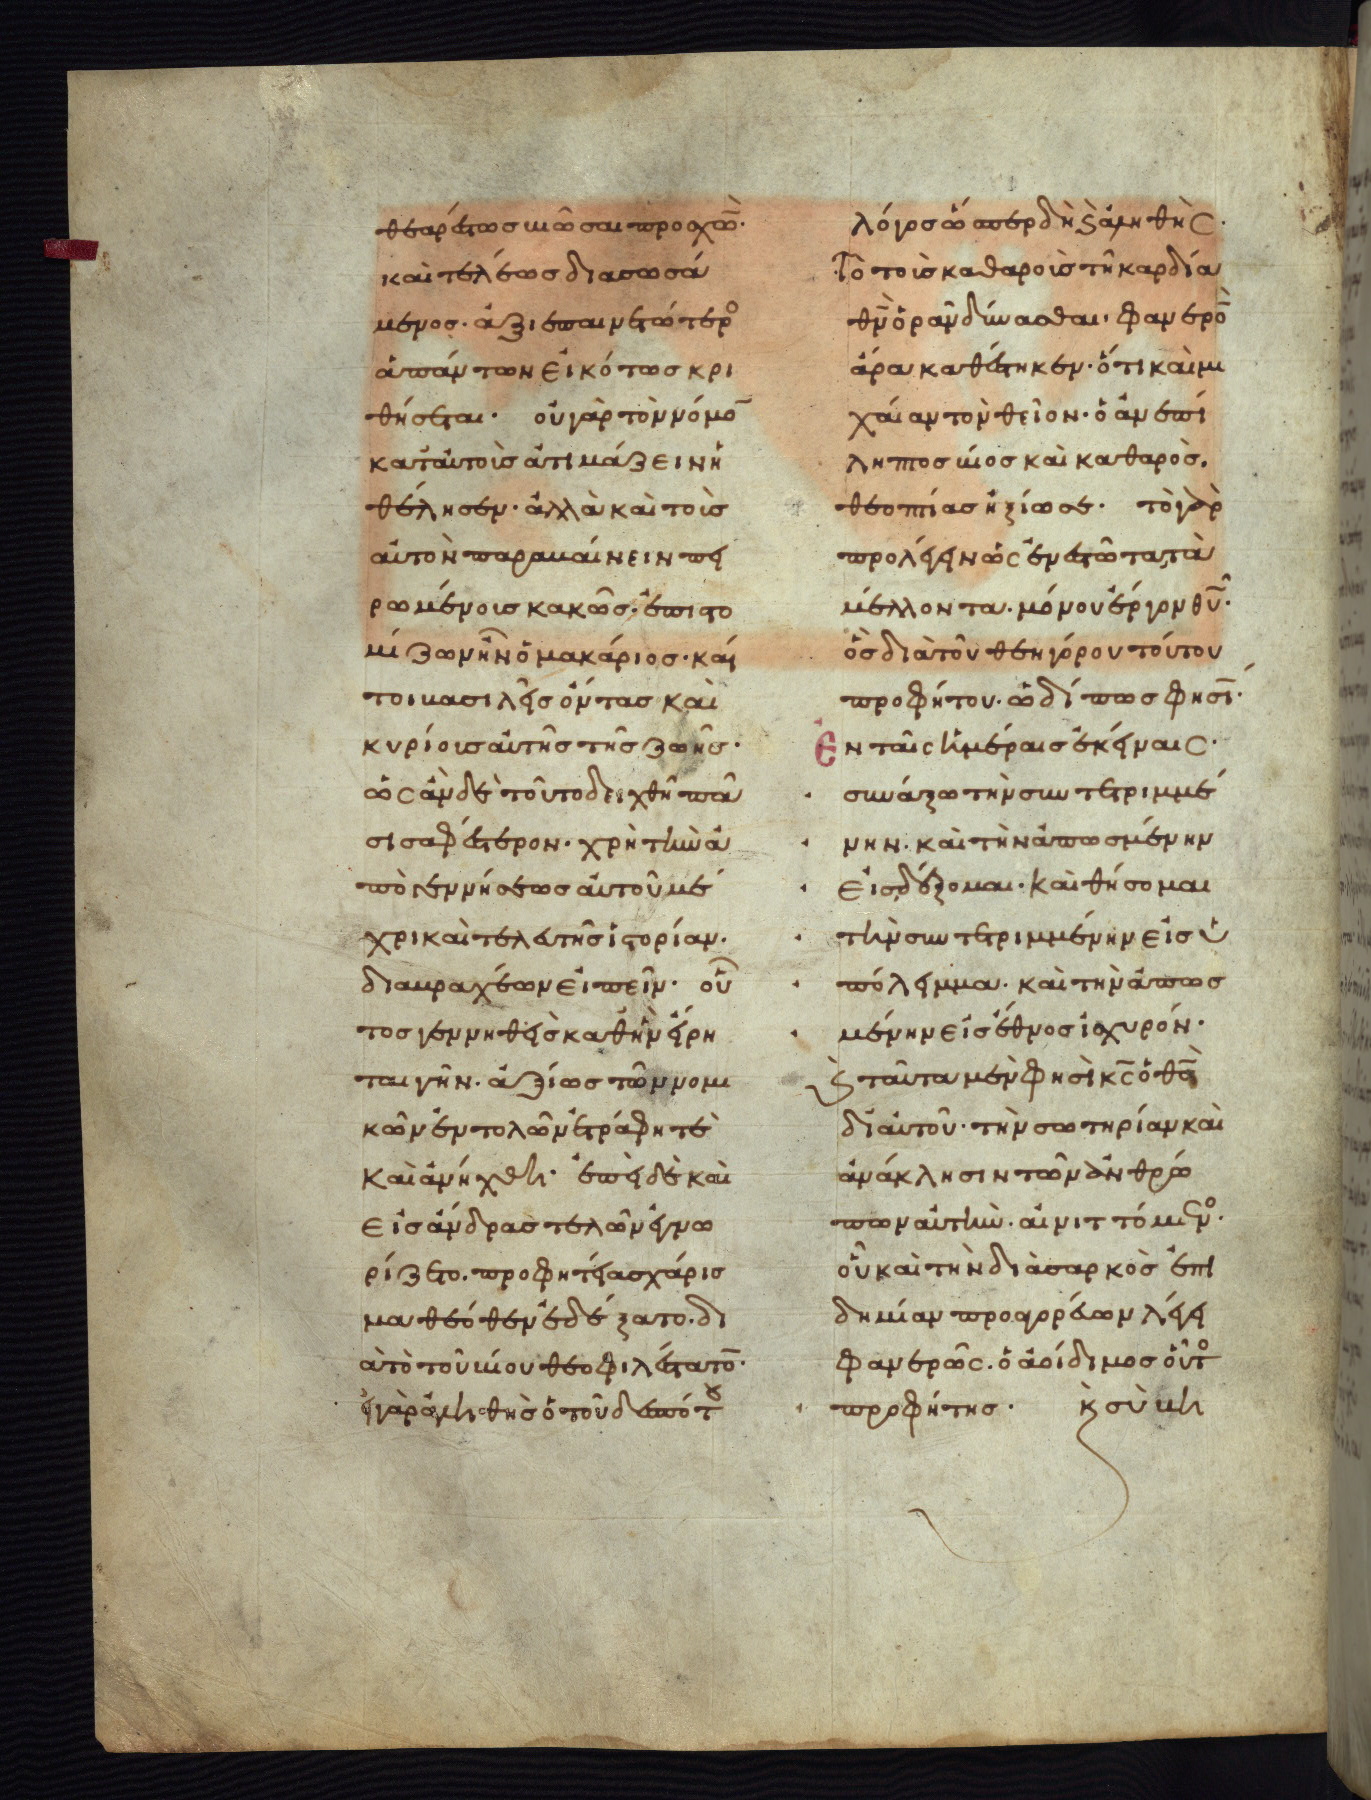 θεαρέτως βιῶσαι προσχὼν·
καὶ τελέως διασωσά
μενος· ἀξιεπαινετώτερο
ἁπάντων εἰκότως κρι
θήσεται· οὐ γὰρ τὸν νόμο
κατ' αὐτοὺς ἀτιμάζειν ἠ
θέλησεν· ἀλλὰ καὶ τοῖς
αὐτὸν παραβαίνειν πει
ρωμένοις κακῶς· ἐπιστο
μίζων ἦν ὁ μακάριος· καί
τοι βασιλεῖς ὄντας καὶ
κυρίους αὐτῆς τῆς ζωῆς·
ὡς ἂν δὲ τοῦτο δειχθῆ πᾶ
σι σαφέστερον· χρὴ τὴν ἀ
πὸ γεννήσεως αὐτοῦ μέ
χρι καὶ τελευτῆς ἱστορίαν·
διὰ βραχέων εἰπεῖν· οὗ
τος γεννηθεὶς καθ' ἣν εἴρη
ται γῆν· ἀξίως τῶν νομι
κῶν ἐντολῶν ἐτράφη τὲ
καὶ ἀνήχθη· ἐπεὶ δὲ καὶ
εἰς ἄνδρας τελῶν ἐγνω
ρίζετο· προφητείας χάρισ
μα θεόθεν ἐδέξατο· δι
ὰ τὸ τοῦ βίου θεοφιλέστατο·
εἰ γὰρ ἀληθὴς ὁ τοῦ δεσπότου
λόγος ὥσπερ δὴ καὶ ἀληθὴς·
Τὸ τοῖς καθαροῖς τῆ καρδία
θν ὁρᾶν δύνασθαι· φανερὸ
ἄρα καθέστηκεν· ὅτι καὶ μι
χαίαν τὸν θεῖον· ὁ ἀνεπί
ληπτος βίος καὶ καθαρὸς·
θεοπτίας ἠξίωσε· τὸ γὰρ
προλέγειν ὡς ἐνεστῶτα τὰ
μέλλοντα· μόνου ἔργον θυ·
ὃς διὰ τοῦ θεηγόρου τούτου
προφήτου· ὡδί πως φησί·
Ἐν ταῖς ἡμέραις ἐκείναις·
συνάξω τὴν συντετριμμέ
νην· καὶ τὴν ἀπωσμένην
εἰσδέξομαι· καὶ θήσομαι
τὴν συντετριμμένην εἰς ὑ
πόλειμμα· καὶ τὴν ἀπωσ
μένην εἰς ἔθνος ἰσχυρόν·
καὶ ταῦτα μὲν φησὶ κς ὁ θς
δι' αὐτοῦ· τὴν σωτηρίαν καὶ
ἀνάκλησιν τῶν ἀνθρώ
πων αὐτὴν· αἰνιττόμενο·
οὗ καὶ τὴν διὰ σαρκὸς ἐπι
δημίαν προαγορεύων λέγει
φανερῶς· ὁ ἀοίδιμος οὗτο
προφήτης· κ σὺ βη